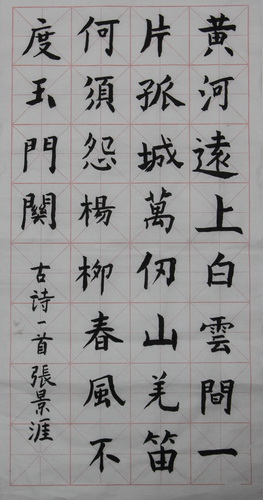 黃河遠上白雲間一
片孤城萬仞山羌笛
何須怨楊柳春風不
度玉門關
古詩一首張景涯